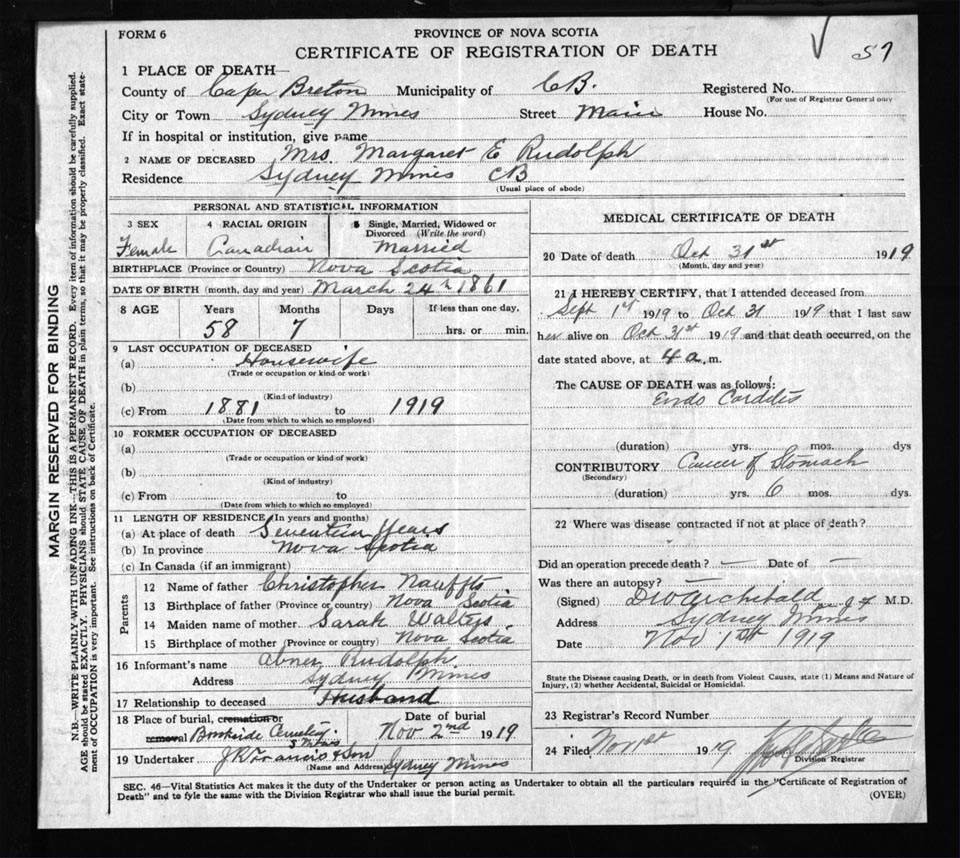 FORM 6
PROVINCE OF NOVA SCOTIA
CERTIFICATE OF REGISTRATION OF DEATH
57
MARGIN RESERVED FOR BINDING
N.B.—WRITE PLAINLY WITH UNFADING INK—THIS IS A PERMANENT RECORD. Every item of information should be carefully supplied.
AGE should be stated EXACTLY. PHYSICIANS should STATE CAUSE OF DEATH in plain terms, so that it may be properly classified. Exact state-
ment of OCCUPATION is very important. See instructions on back of Certificate.
1 PLACE OF DEATH—
County of Cape Breton Municipality of C.B. Registered No.
(For use of Registrar General only)
City or Town Sydney Mines Street Main House No.
If in hospital or institution, give name
2 NAME OF DECEASED Mrs. Margaret E Rudolph
Residence Sydney Mines CB
(Usual place of abode)
PERSONAL AND STATISTICAL INFORMATION
3 SEX 4 RACIAL ORIGIN 5 Single, Married, Widowed or
Divorced (Write the word)
Female Canadian Married
BIRTHPLACE (Province or Country) Nova Scotia
DATE OF BIRTH (month, day and year) March 24th 1861
8 AGE Years Months Days If less than one day,
58 7 hrs. or min.
9 LAST OCCUPATION OF DECEASED
(a) Housewife
(Trade or occupation or kind or work)
(b)
(Kind of industry)
(c) From 1881 to 1919
(Date from which to which so employed)
10 FORMER OCCUPATION OF DECEASED
(a)
(Trade or occupation or kind of work)
(b)
(Kind of industry)
(c) From to
(Date from which to which so employed)
11 LENGTH OF RESIDENCE (In years and months)
(a) At place of death Seventeen Years
(b) In province Nova Scotia
(c) In Canada (if an immigrant)
Parents
12 Name of father Christopher Nauffts
13 Birthplace of father (Province or country) Nova Scotia
14 Maiden name of mother Sarah Walters
15 Birthplace of mother (Province or country) Nova Scotia
16 Informant's name Abner Rudolph
Address Sydney Mines
17 Relationship to deceased Husband
18 Place of burial, cremation or Date of burial
removal Brookside Cemetery Nov 2nd 1919
S Mines
19 Undertaker J R Francis & Son
(Name and Address) Sydney Mines
MEDICAL CERTIFICATE OF DEATH
20 Date of death Oct 31st 1919
(Month, day and year)
21 I HEREBY CERTIFY, that I attended deceased from
Sept 1st 1919 to Oct 31 1919 that I last saw
her alive on Oct 31st 1919 and that death occurred, on the
date stated above, at 4 a.m.
The CAUSE OF DEATH was as follows:
Endo Carditis
(duration) yrs. mos. dys
CONTRIBUTORY Cancer of Stomach
(Secondary)
(duration) yrs. 6 mos. dys.
22 Where was disease contracted if not at place of death?
Did an operation precede death? — Date of —
Was there an autopsy? —
(Signed) Archibald M.D.
Address Sydney Mines
Date Nov 1st 1919
State the Disease causing Death, or in death from Violent Causes, state (1) Means and Nature of
Injury, (2) whether Accidental, Suicidal or Homicidal.
23 Registrar's Record Number
24 Filed Nov 1st 1919
Division Registrar
SEC. 46—Vital Statistics Act makes it the duty of the Undertaker or person acting as Undertaker to obtain all the particulars required in the "Certificate of Registration of
Death" and to fyle the same with the Division Registrar who shall issue the burial permit.
(OVER)